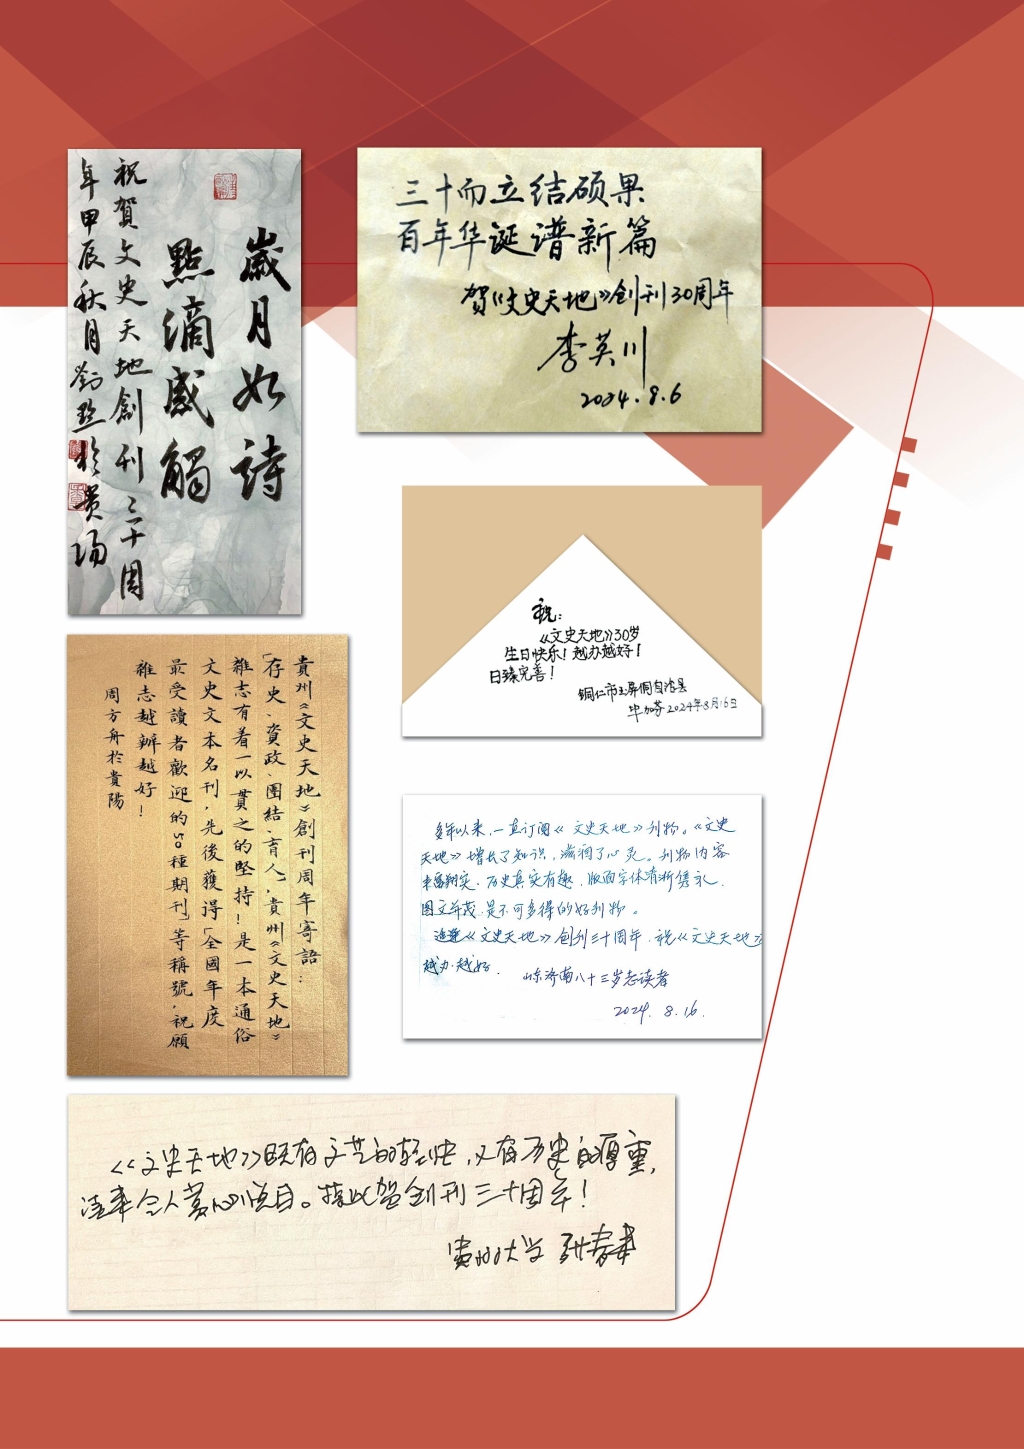 歲月如詩
點滴感觸
祝賀文史天地創刊三十周
年甲辰秋月劉
於貴陽
三十而立结硕果
百年华诞谱新篇
贺《文史天地》创刊30周年
李英川
2024.8.6
祝:
《文史天地》30岁
生日快乐!越办越好!
日臻完善!
铜仁市玉屏侗自治县
毕加芬 2024年8月16日
貴州《文史天地》創刊周年寄語:
「存史、資政、團結、育人」,貴州《文史天地》
雜志有着一以貫之的堅持!是一本通俗
文史文本名刊,先後獲得「全國年度
最受讀者歡迎的50種期刊」等稱號,祝願
雜志越辦越好!
周方舟於貴陽
多年以来,一直订阅《文史天地》刊物。《文史
天地》增长了知识,滋润了心灵。刊物内容
丰富翔实,历史真实有趣,版面字体清晰隽永,
图文并茂,是不可多得的好刊物。
适逢《文史天地》创刊三十周年,祝《文史天地》
越办越好.
山东济南八十三岁老读者
2024.8.16.
《文史天地》既有文艺的轻快,又有历史的厚重,
读来令人赏心悦目。借此贺创刊三十周年!
贵州大学